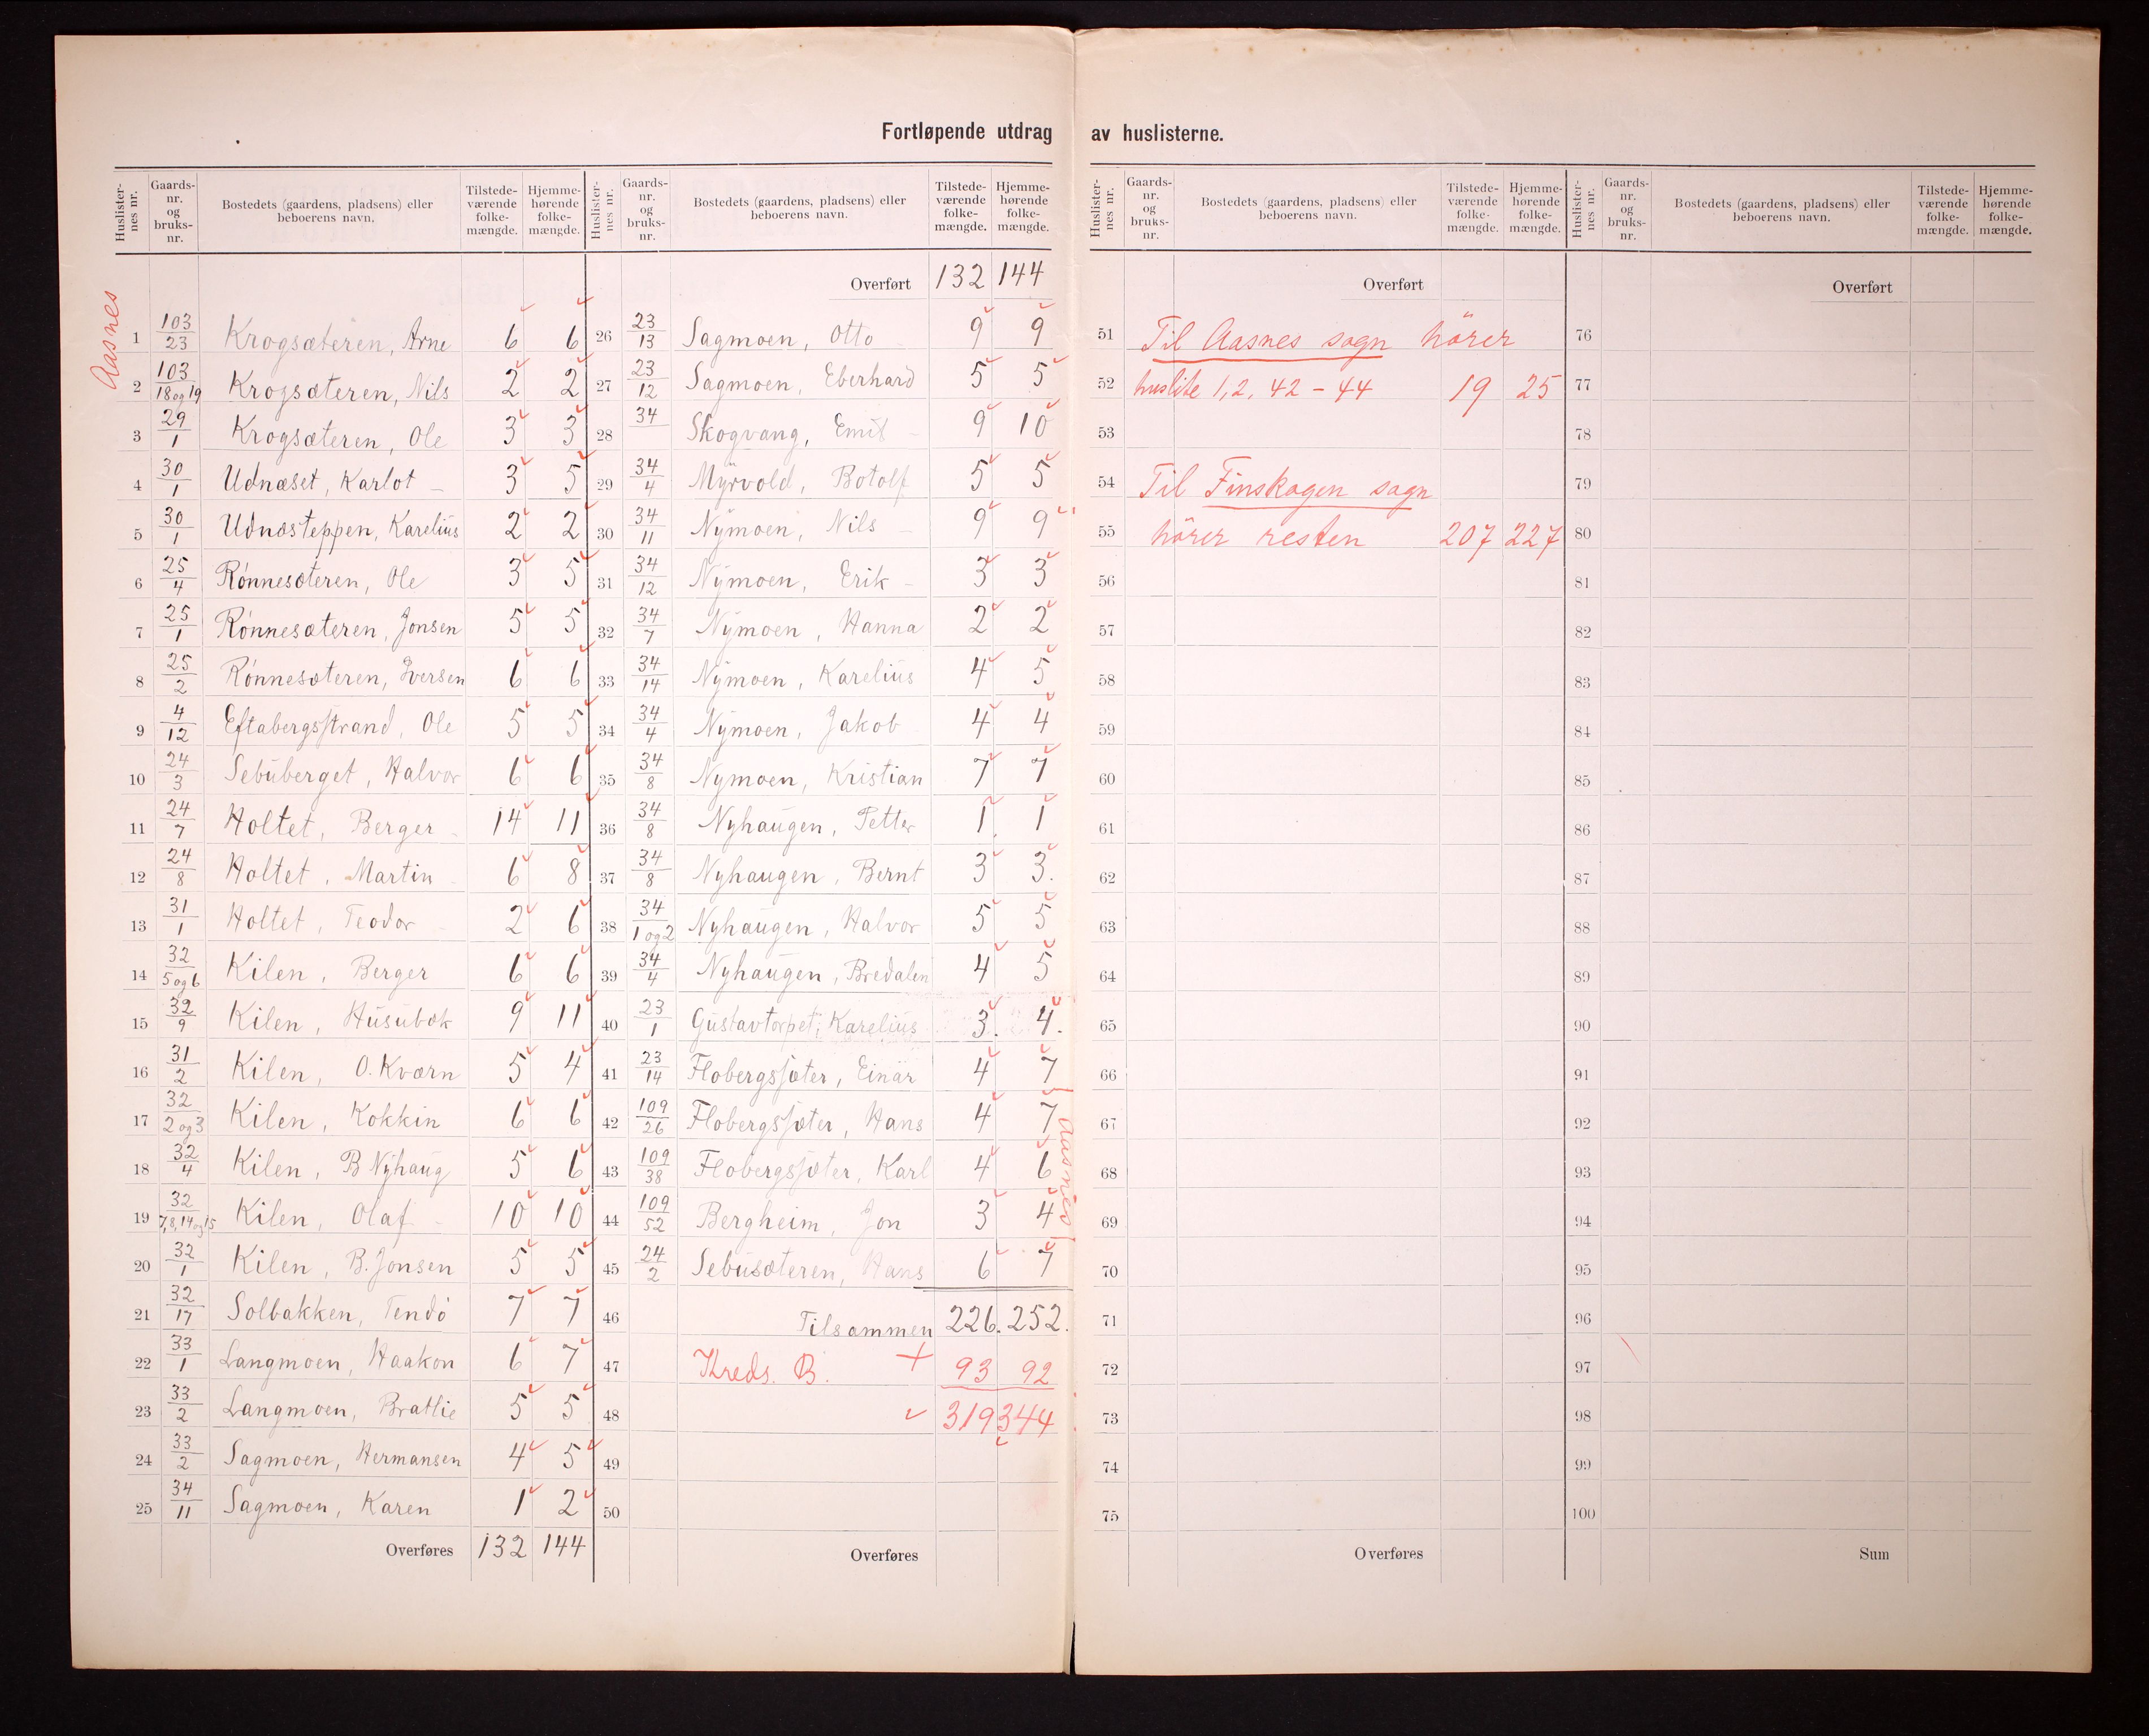 Fortløpende utdrag av huslisterne.
Huslister-nes nr. Gaards-nr. og bruks-nr. Bostedets (gaardens, pladsens) eller beboerens navn. Tilstede-værende folke-mængde. Hjemme-hørende folke-mængde.
Aasnes
1 103/23 Krogsæteren, Arne 6 6
2 103/18 og 19 Krogsæteren, Nils 2 2
3 29/1 Krogsæteren, Ole 3 3
4 30/1 Udnæset, Karlot 3 5
5 30/1 Udnæsteppen, Karelius 2 2
6 25/4 Rønnesæteren, Ole 3 5
7 25/1 Rønnesæteren, Jonsen 5 5
8 25/2 Rønnesæteren, Iversen 6 6
9 4/12 Eftabergsstrand, Ole 5 5
10 24/3 Sebuberget, Halvor 6 6
11 24/7 Holtet, Berger 14 11
12 24/8 Holtet, Martin 6 8
13 31/1 Holtet, Teodor 2 6
14 32/5 og 6 Kilen, Berger 6 6
15 32/9 Kilen, Husubæk 9 11
16 31/2 Kilen, O. Kværn 5 4
17 32/2 og 3 Kilen, Kokkin 6 6
18 32/4 Kilen, B Nyhaug 5 6
19 32/7, 8, 14 og 15 Kilen, Olaf 10 10
20 32/1 Kilen, B. Jonsen 5 5
21 32/17 Solbakken, Tendø 7 7
22 33/1 Langmoen, Haakon 6 7
23 33/2 Langmoen, Bratlie 5 5
24 33/2 Sagmoen, Hermansen 4 5
25 34/11 Sagmoen, Karen 1 2
Overføres 132 144
Huslister-nes nr. Gaards-nr. og bruks-nr. Bostedets (gaardens, pladsens) eller beboerens navn. Tilstede-værende folke-mængde. Hjemme-hørende folke-mængde.
Overført 132 144
26 23/13 Sagmoen, Otto 9 9
27 23/12 Sagmoen, Eberhard 5 5
28 34 Skogvang, Emil 9 10
29 34/4 Myrvold, Botolf 5 5
30 34/11 Nymoen, Nils 9 9
31 34/12 Nymoen, Erik 3 3
32 34/7 Nymoen, Hanna 2 2
33 34/14 Nymoen, Karelius 4 5
34 34/4 Nymoen, Jakob 4 4
35 34/8 Nymoen, Kristian 7 7
36 34/8 Nyhaugen, Petter 1 1
37 34/8 Nyhaugen, Bernt 3 3.
38 34/1 og 2 Nyhaugen, Halvor 5 5
39 34/4 Nyhaugen, Bredalen 4 5
40 23/1 Gustavtorpet, Karelius 3. 4.
41 23/14 Flobergssæter, Einar 4 7
42 109/26 Flobergssæter, Hans 4 7
43 109/38 Flobergssæter, Karl 4 6
44 109/52 Bergheim, Jon 3 4
Aasnes
45 24/2 Sebusæteren, Hans 6 7
46 Tilsammen 226. 252.
47 Kreds. B. + 93 92
48 319 344
49
50
Overføres
Huslister-nes nr. Gaards-nr. og bruks-nr. Bostedets (gaardens, pladsens) eller beboerens navn. Tilstede-værende folke-mængde. Hjemme-hørende folke-mængde.
Overført
51 Til Aasnes sogn hører
52 huslite 1, 2, 42 - 44 19 25
53
54 Til Finskogen sogn
55 hører resten 207 227
56
57
58
59
60
61
62
63
64
65
66
67
68
69
70
71
72
73
74
75
Overføres
Huslister-nes nr. Gaards-nr. og bruks-nr. Bostedets (gaardens, pladsens) eller beboerens navn. Tilstede-værende folke-mængde. Hjemme-hørende folke-mængde.
Overført
76
77
78
79
80
81
82
83
84
85
86
87
88
89
90
91
92
93
94
95
96
97
98
99
100
Sum